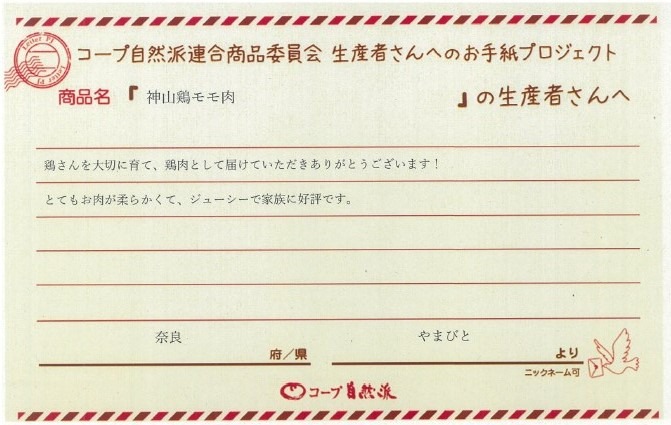 コープ自然派連合商品委員会 生産者さんへのお手紙プロジェクト
商品名『 神山鶏モモ肉 』の生産者さんへ
鶏さんを大切に育て、鶏肉として届けていただきありがとうございます！
とてもお肉が柔らかくて、ジューシーで家族に好評です。
奈良 府／県 やまびと より
ニックネーム可
コープ自然派